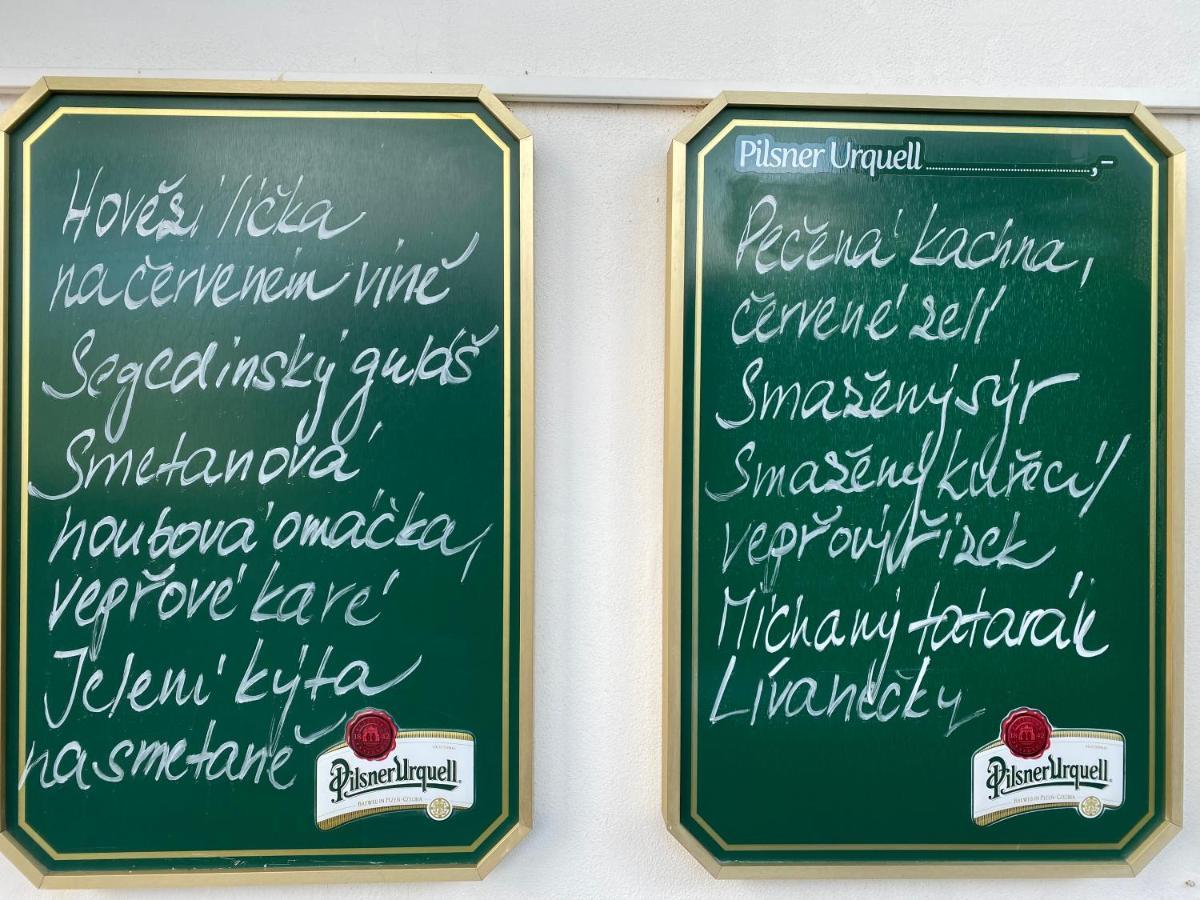 Hovězí líčka
na červeném víně
Segedínský guláš
Smetanová
houbová omáčka,
vepřové karé
Jelení kýta
na smetaně
1842
Pilsner Urquell
BREWED IN PLZEŇ-CZECHIA
Pilsner Urquell ..............................,-
Pečená kachna,
červené zelí
Smažený sýr
Smažený kuřecí/
vepřový řízek
Míchaný tatarák
Lívanečky
1842
Pilsner Urquell
BREWED IN PLZEŇ-CZECHIA